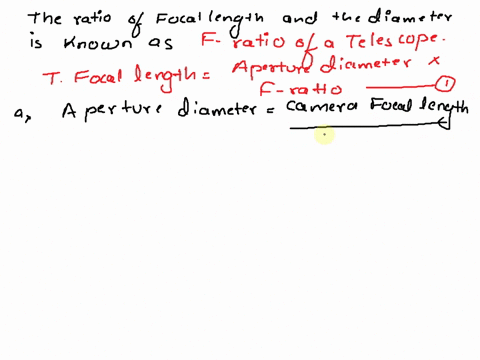 The ratio of Focal length and the diameter
is known as F-ratio of a Telescope.
T. Focal length = Aperture diameter x
F-ratio ①
a, Aperture diameter = camera Focal length